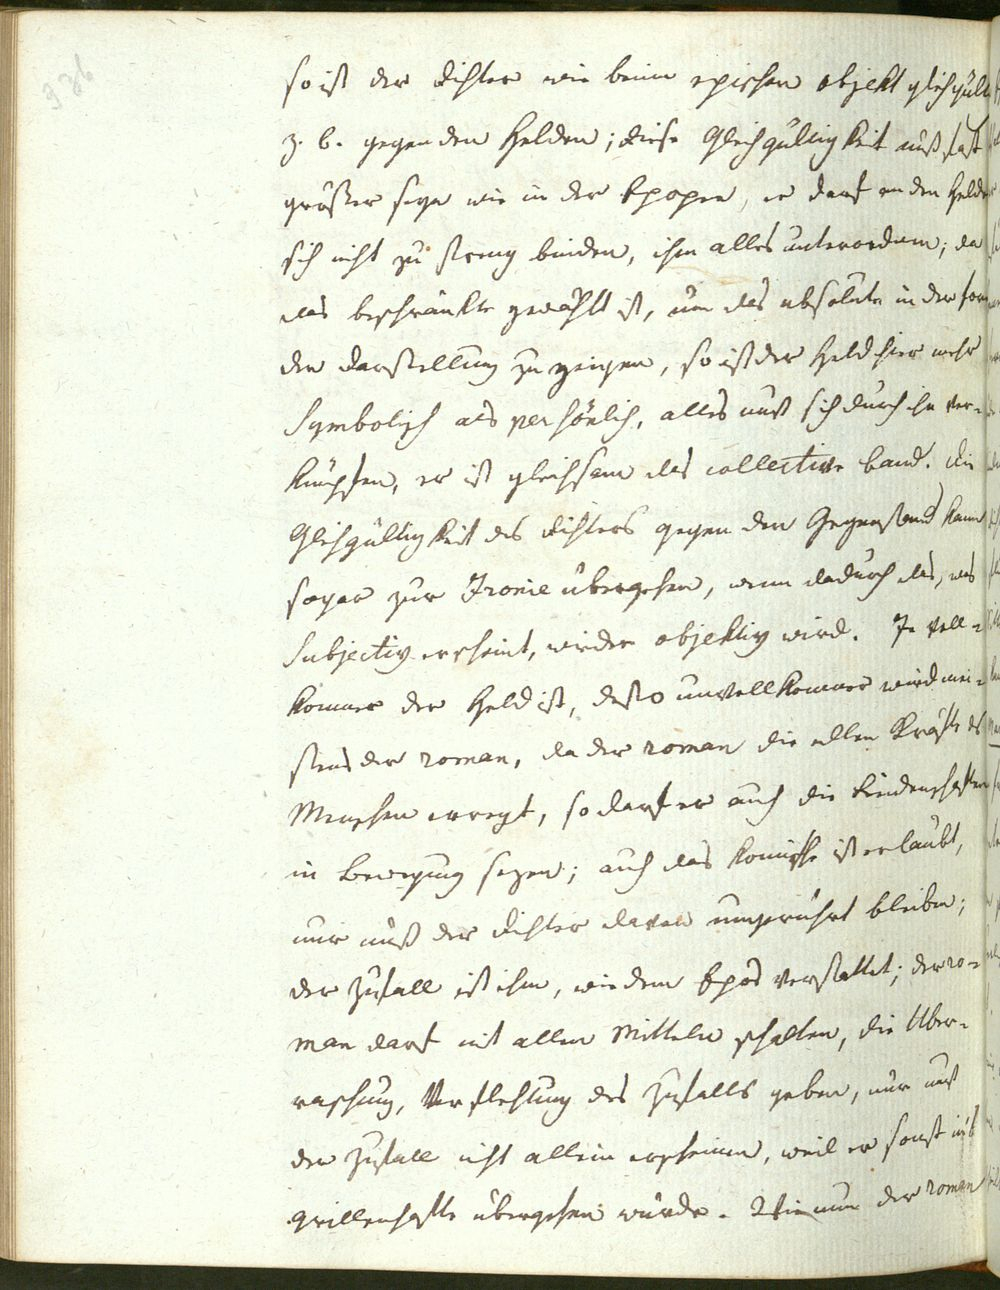 936
so ist der dichter wie beim epischen objekt gleichgült
z. b. gegen den Helden; diese Gleichgültigkeit muß fast
größer seyn wie in der Epopee, er darf an den Helden
sich nicht zu streng binden, ihm alles unterordnen; da
das beschränkte gewählt ist, um das absolute in der form
der darstellung zu zeigen, so ist der Held hier mehr
Symbolisch als persönlich, alles muß sich durch ihn ver-
knüpfen, er ist gleichsam das collective band. die
Gleichgültigkeit des dichters gegen den Gegenstand kann
sogar zur Ironie übergehen, wenn dadurch das, was
Subjectiv erscheint, wieder objektiv wird. Je voll-
kommner der Held ist, desto unvollkommner wird mei-
stens der roman, da der roman die allen Kräfte des
Menschen erregt, so darf er auch die Leidenschaften
in bewegung sezen; auch das komische ist erlaubt,
nur muß der dichter davon ungerührt bleiben;
der Zufall ist ihm, wie dem Epos verstattet; der ro-
man darf mit allen Mitteln schalten, die Über-
raschung, Verflechtung des Zufalls geben, nur muß
der Zufall nicht allein erscheinen, weil er sonst ins
grillenhafte übergehen würde. Wie nun der roman